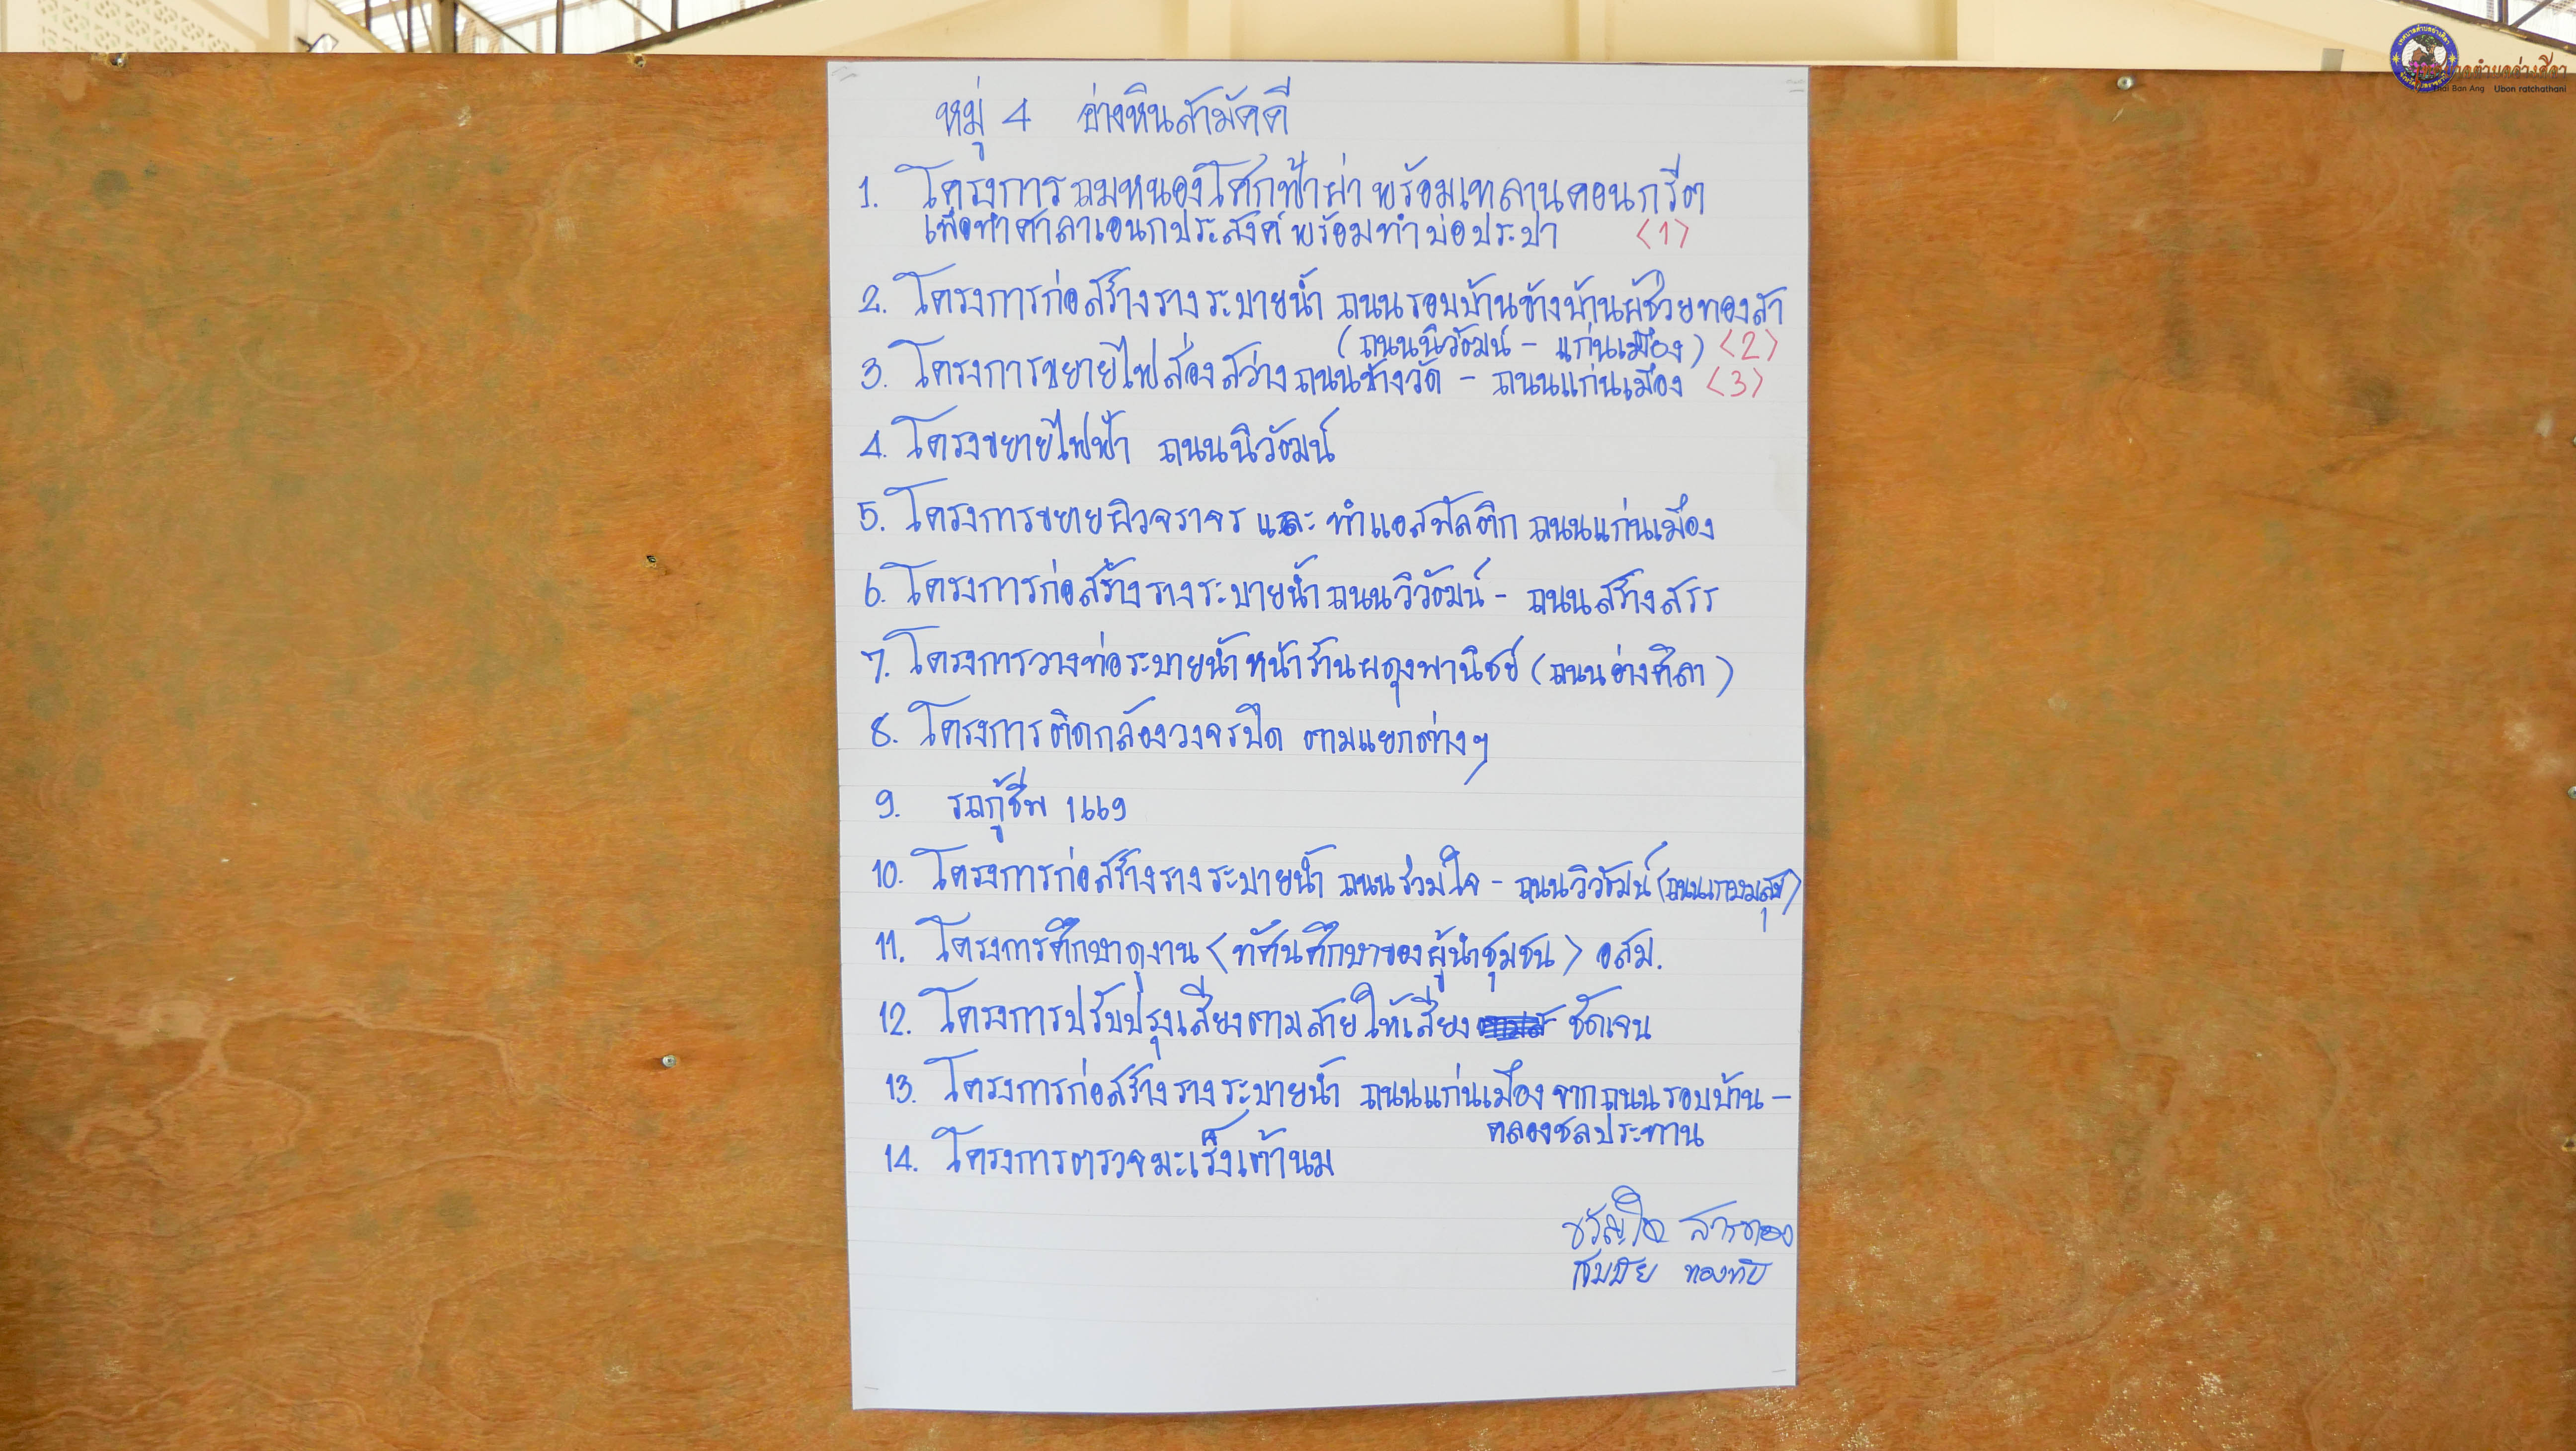 หมู่ 4 อ่างหินสามัคคี
1. โครงการถมหนองโศกฟ้าผ่า พร้อมเทลานคอนกรีต
เพื่อทำศาลาเอนกประสงค์ พร้อมทำบ่อประปา <1>
2. โครงการก่อสร้างรางระบายน้ำ ถนนรอบบ้านข้างบ้านผู้ช่วยทองสา
(ถนนนิวัฒน์ - แก่นเมือง) <2>
3. โครงการขยายไฟส่องสว่าง ถนนข้างวัด - ถนนแก่นเมือง <3>
4. โครงขยายไฟฟ้า ถนนนิวัฒน์
5. โครงการขยายผิวจราจร และ ทำแอสฟัลติก ถนนแก่นเมือง
6. โครงการก่อสร้างรางระบายน้ำ ถนนวิวัฒน์ - ถนนสร้างสรร
7. โครงการวางท่อระบายน้ำหน้าร้านผดุงพานิชย์ (ถนนอ่างศิลา)
8. โครงการติดกล้องวงจรปิด ตามแยกต่างๆ
9. รถกู้ชีพ 1669
10. โครงการก่อสร้างรางระบายน้ำ ถนนร่วมใจ - ถนนวิวัฒน์
11. โครงการศึกษาดูงาน <ทัศนศึกษาของผู้นำชุมชน> อสม.
12. โครงการปรับปรุงเสียงตามสายให้เสียง ชัดเจน
13. โครงการก่อสร้างรางระบายน้ำ ถนนแก่นเมือง จากถนนรอบบ้าน -
คลองชลประทาน
14. โครงการตรวจมะเร็งเต้านม
ขวัญใจ สารทอง
Thai Ban Ang Ubon ratchathani